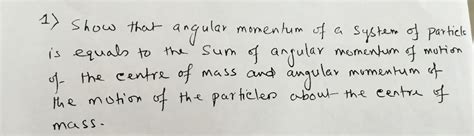 1) Show that angular momentum of a system of particle
is equals to the sum of angular momentum of motion
of the centre of mass and angular mumentum of
the motion of the particles about the centre of
mass.